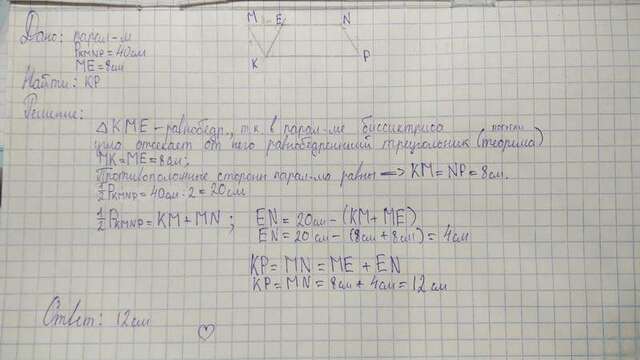 M E N
Дано: парал-м
PKMNP = 40см
ME = 8см
K P
Найти: KP
Решение:
△KME - равнобедр., т.к. в парал-ме биссиктриса
угла отсекает от него равнобедренный треугольник (теорема)
MK = ME = 8см;
Противоположные стороны парал-ма равны => KM = NP = 8см.
½PKMNP = 40см : 2 = 20см
½PKMNP = KM + MN ; EN = 20см - (KM + ME)
EN = 20см - (8см + 8см) = 4см
KP = MN = ME + EN
KP = MN = 8см + 4см = 12см
Ответ: 12см